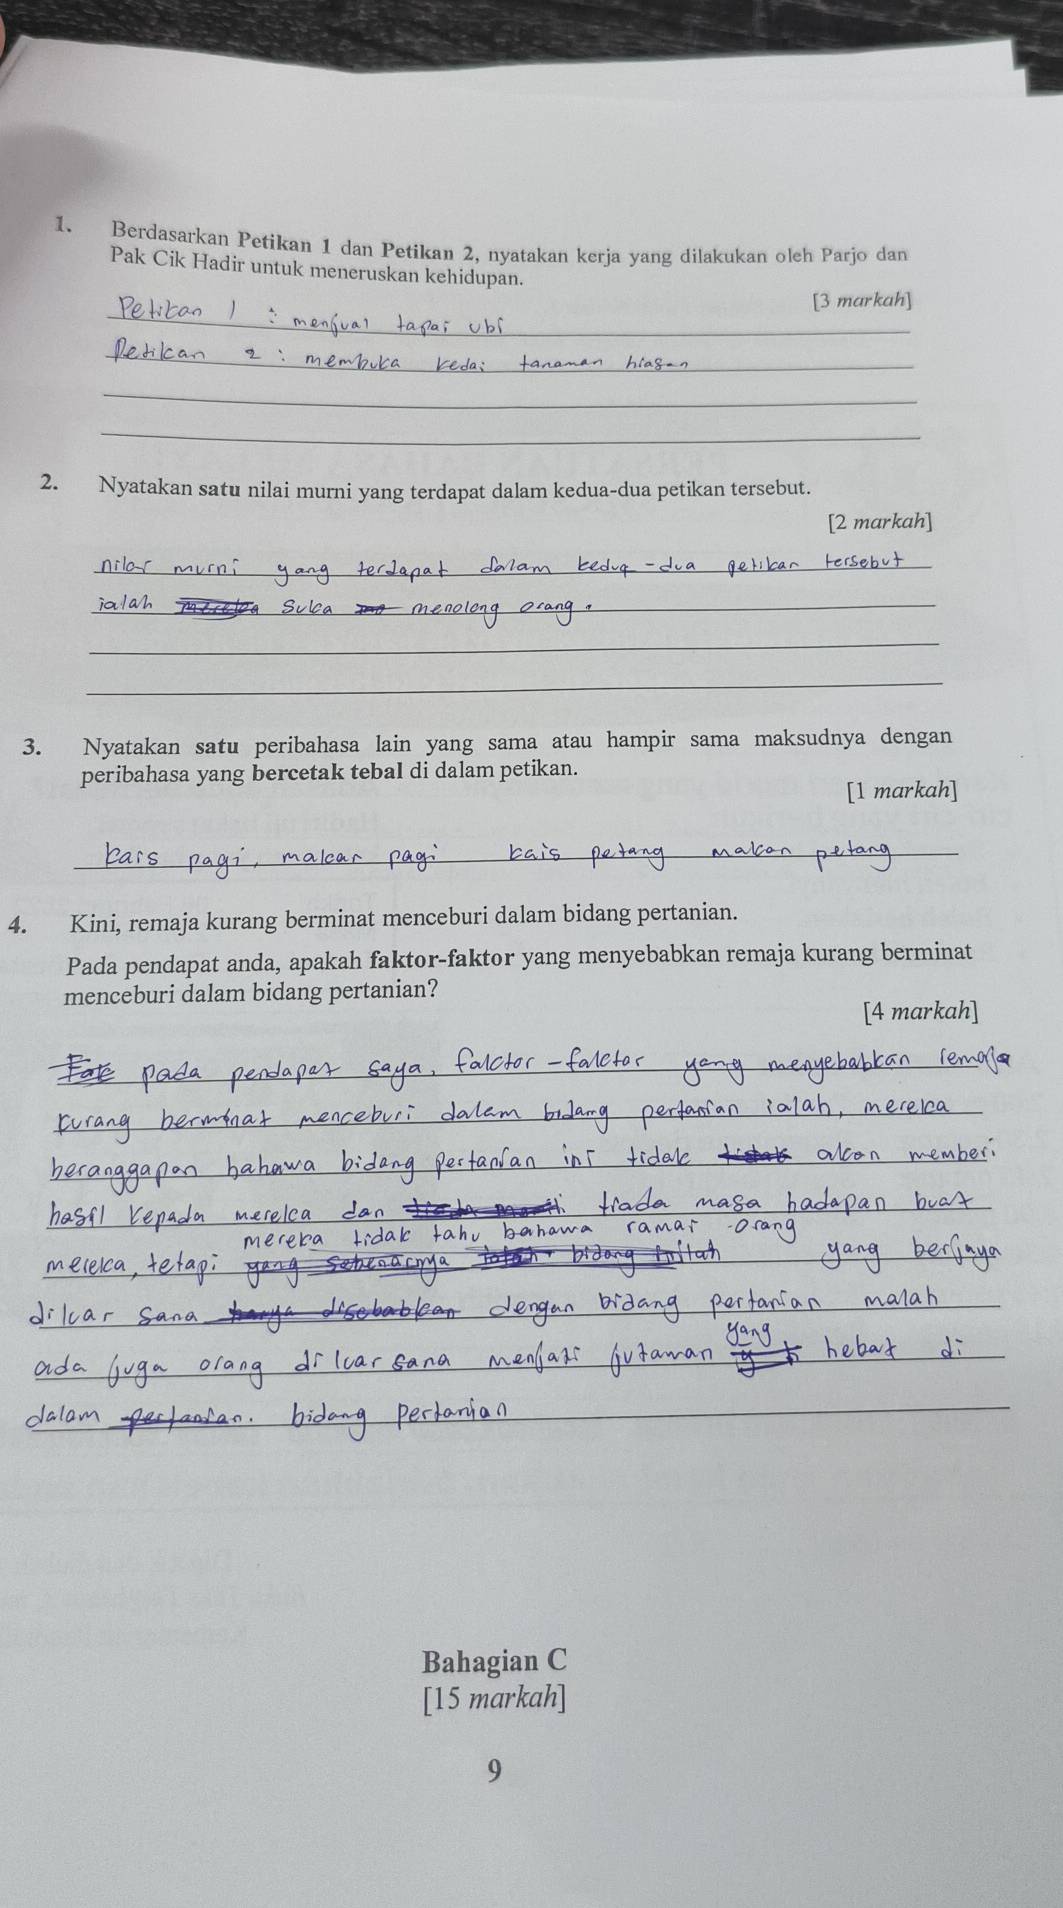 1. Berdasarkan Petikan 1 dan Petikan 2, nyatakan kerja yang dilakukan oleh Parjo dan
Pak Cik Hadir untuk meneruskan kehidupan.
[3 markah]
Petikan 1 : menjual tapai ubi
Petikan 2 : membuka kedai tanaman hiasan
2. Nyatakan satu nilai murni yang terdapat dalam kedua-dua petikan tersebut.
[2 markah]
nilai murni yang terdapat dalam kedua-dua petikan tersebut
ialah suka menolong orang.
3. Nyatakan satu peribahasa lain yang sama atau hampir sama maksudnya dengan
peribahasa yang bercetak tebal di dalam petikan.
[1 markah]
kais pagi, makan pagi kais petang makan petang
4. Kini, remaja kurang berminat menceburi dalam bidang pertanian.
Pada pendapat anda, apakah faktor-faktor yang menyebabkan remaja kurang berminat
menceburi dalam bidang pertanian?
[4 markah]
pada pendapat saya, faktor-faktor yang menyebabkan remaja
kurang berminat menceburi dalam bidang pertanian ialah, mereka
beranggapan bahawa bidang pertanian ini tidak akan memberi
hasil kepada mereka dan tiada masa hadapan buat
mereka tidak tahu bahawa ramai orang
mereka, tetapi yang sebenarnya bidang yang berjaya
diluar sana hanya disebabkan dengan bidang pertanian malah
ada juga orang diluar sana menjadi jutawan yang hebat di
dalam pertanian. bidang pertanian
Bahagian C
[15 markah]
9